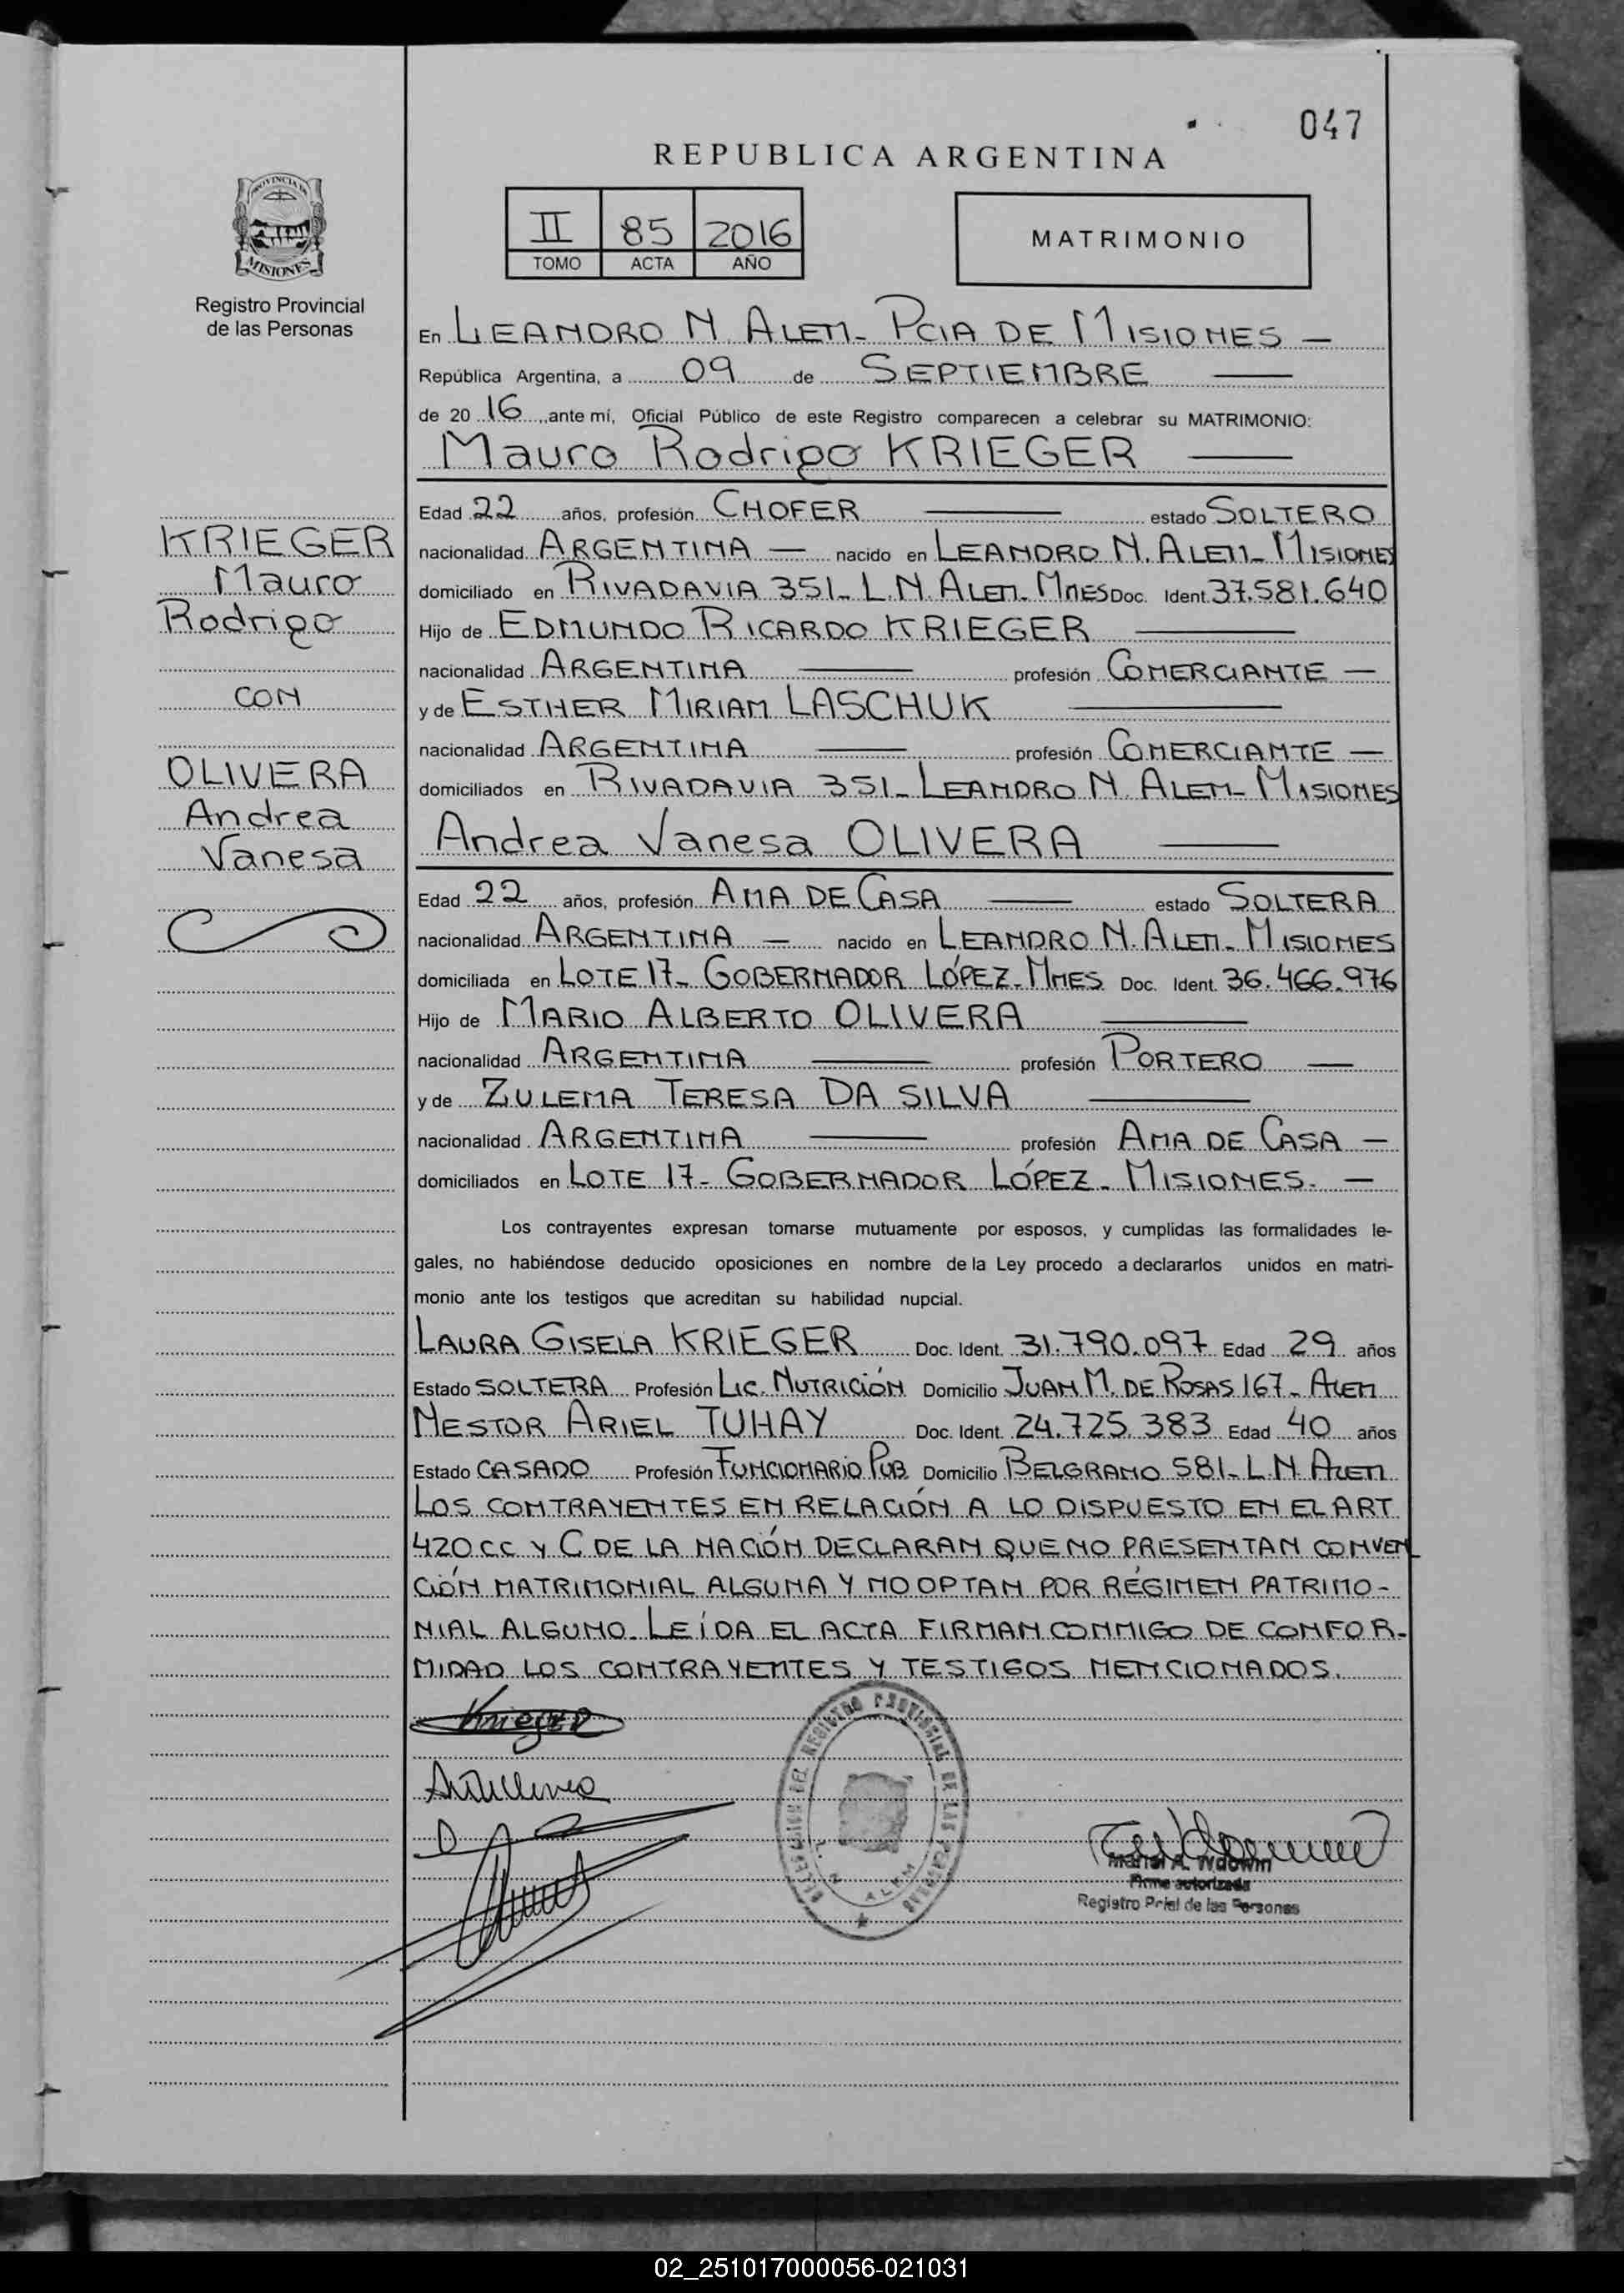 047
REPUBLICA ARGENTINA
PROVINCIA DE
MISIONES
Registro Provincial
de las Personas
II 85 2016
TOMO ACTA AÑO
MATRIMONIO
En LEANDRO N ALEM - PCIA DE MISIONES —
República Argentina, a 09 de SEPTIEMBRE —
de 20 16, ante mí, Oficial Público de este Registro comparecen a celebrar su MATRIMONIO:
Mauro Rodrigo KRIEGER —
KRIEGER
Mauro
Rodrigo
CON
OLIVERA
Andrea
Vanesa
Edad 22 años, profesión CHOFER — estado SOLTERO
nacionalidad ARGENTINA — nacido en LEANDRO N. ALEM - MISIONES
domiciliado en RIVADAVIA 351 - L.N. ALEM - MNES Doc. Ident. 37.581.640
Hijo de EDMUNDO RICARDO KRIEGER —
nacionalidad ARGENTINA — profesión COMERCIANTE —
y de ESTHER MIRIAM LASCHUK —
nacionalidad ARGENTINA — profesión COMERCIANTE —
domiciliados en RIVADAVIA 351 - LEANDRO N. ALEM - MISIONES
Andrea Vanesa OLIVERA —
Edad 22 años, profesión AMA DE CASA — estado SOLTERA
nacionalidad ARGENTINA — nacido en LEANDRO N. ALEM - MISIONES
domiciliada en LOTE 17 - GOBERNADOR LÓPEZ - MNES Doc. Ident. 36.466.976
Hijo de MARIO ALBERTO OLIVERA —
nacionalidad ARGENTINA — profesión PORTERO —
y de ZULEMA TERESA DA SILVA —
nacionalidad ARGENTINA — profesión AMA DE CASA —
domiciliados en LOTE 17 - GOBERNADOR LÓPEZ - MISIONES. —
Los contrayentes expresan tomarse mutuamente por esposos, y cumplidas las formalidades le-
gales, no habiéndose deducido oposiciones en nombre de la Ley procedo a declararlos unidos en matri-
monio ante los testigos que acreditan su habilidad nupcial.
LAURA GISELA KRIEGER Doc. Ident. 31.790.097 Edad 29 años
Estado SOLTERA Profesión LIC. NUTRICIÓN Domicilio JUAN M. DE ROSAS 167 - ALEM
NESTOR ARIEL TUHAY Doc. Ident. 24.725.383 Edad 40 años
Estado CASADO Profesión FUNCIONARIO PUB. Domicilio BELGRANO 581 - L.N. ALEM
LOS CONTRAYENTES EN RELACIÓN A LO DISPUESTO EN EL ART
420 CC Y C DE LA NACIÓN DECLARAN QUE NO PRESENTAN CONVEN
CIÓN MATRIMONIAL ALGUNA Y NO OPTAN POR RÉGIMEN PATRIMO-
NIAL ALGUNO. LEÍDA EL ACTA FIRMAN CONMIGO DE CONFOR-
MIDAD LOS CONTRAYENTES Y TESTIGOS MENCIONADOS.
Krieger
DEL REGISTRO PROVINCIAL DE LAS PERSONAS
L. N. ALEM
Firma autorizada
Registro Prial de las Personas
02_251017000056-021031